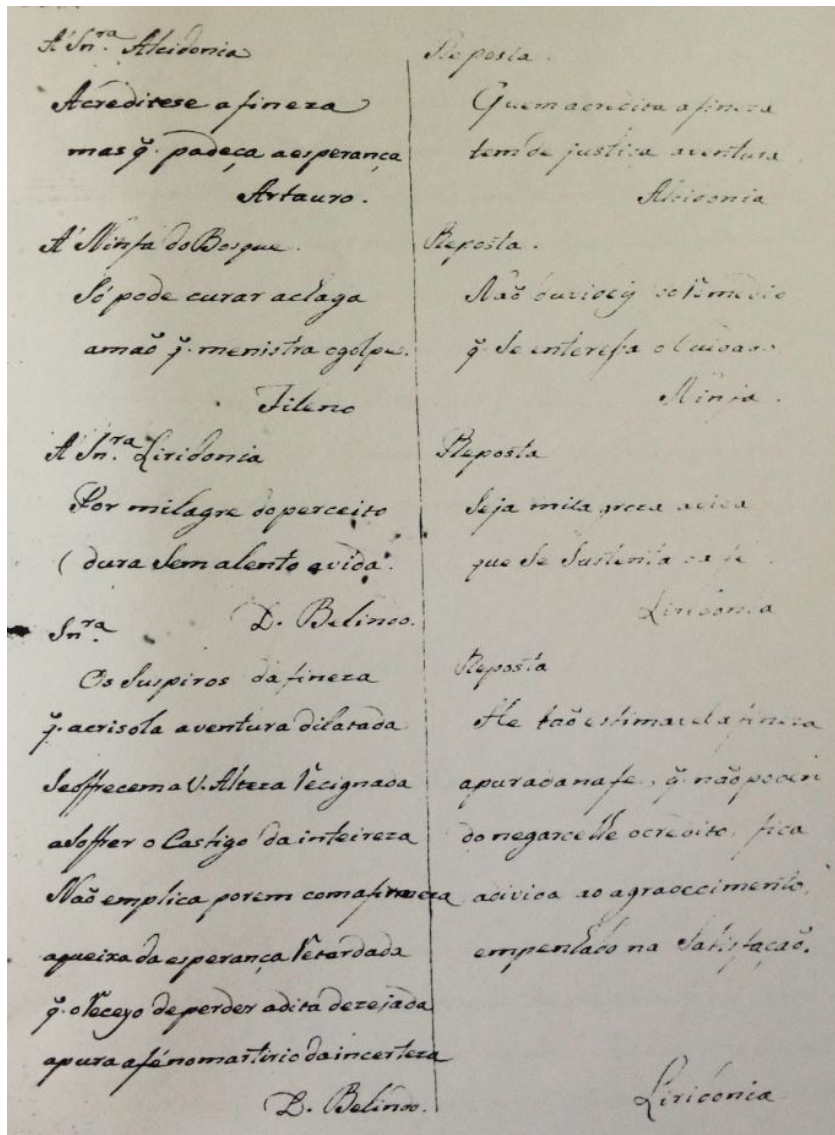 A' Snr.ª Alcidonia
Acreditese afineza
mas q̃. padeça aesperança
Artauro.
A' Ninfa do Bosque.
Só pode curar achaga
amaõ q̃. menistra ogolpe.
Fileno
A' Sn.ra Liridonia
Por milagre doperceito
dura Sem alento avida.
D. Belindo.
Sn.ra
Os Suspiros da fineza
q̃. acrisola aventura dilatada
Seoffrecem a V. Alteza Recignada
aSoffrer o Castigo da inteireza
Naõ emplica porem comafirmeza
aqueixa da esperança Retardada
q̃. oReceyo deperder adita dezejada
apura afé nomartirio daincerteza
D. Belindo.
Reposta.
Quem acredita afineza
tem de justiça aventura
Alcidonia
Reposta.
Naõ duvideq̃ oRemedio
q̃. Se enteressa oCuidado.
Ninfa.
Reposta
Seja milagroza avida
que Se Sustenta da fé.
Liridonia
Reposta
He taõ estimavel afineza
apurada na fe, q̃. nãopoden
do negarcelhe ocredito, fica
adivida ao agradecimento,
empenhado na Satisfaçaõ.
Liridonia